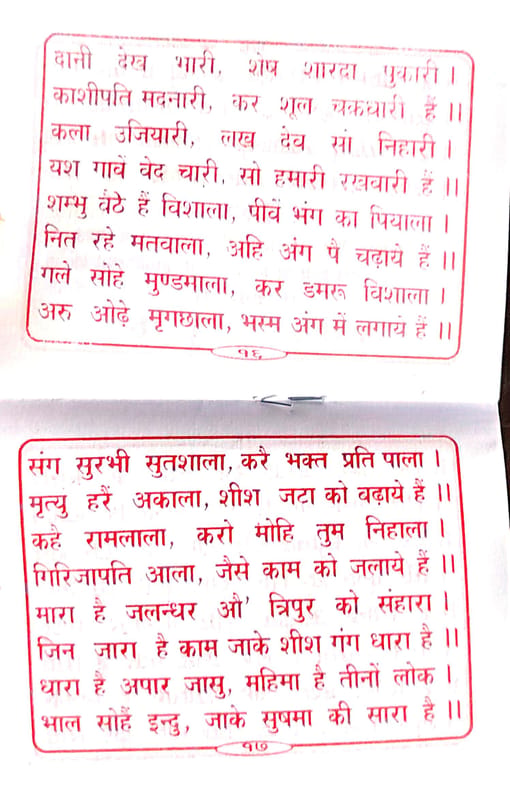 दानी देख भारी, शेष शारदा पुकारी ।
काशीपति मदनारी, कर शूल चक्रधारी हैं ।।
कला उजियारी, लख देव सो निहारी ।
यश गावें वेद चारी, सो हमारी रखवारी हैं ।।
शम्भु बैठे हैं विशाला, पीवें भंग का पियाला ।
नित रहे मतवाला, अहि अंग पै चढ़ाये हैं ।।
गले सोहे मुण्डमाला, कर डमरू विशाला ।
अरु ओढ़े मृगछाला, भस्म अंग में लगाये हैं ।।
१६
संग सुरभी सुतशाला, करै भक्त प्रति पाला ।
मृत्यु हरैं अकाला, शीश जटा को बढ़ाये हैं ।।
कहै रामलाला, करो मोहि तुम निहाला ।
गिरिजापति आला, जैसे काम को जलाये हैं ।।
मारा है जलन्धर औ' त्रिपुर को संहारा ।
जिन जारा है काम जाके शीश गंग धारा है ।।
धारा है अपार जासु, महिमा है तीनों लोक ।
भाल सोहैं इन्दु, जाके सुषमा की सारा है ।।
१७